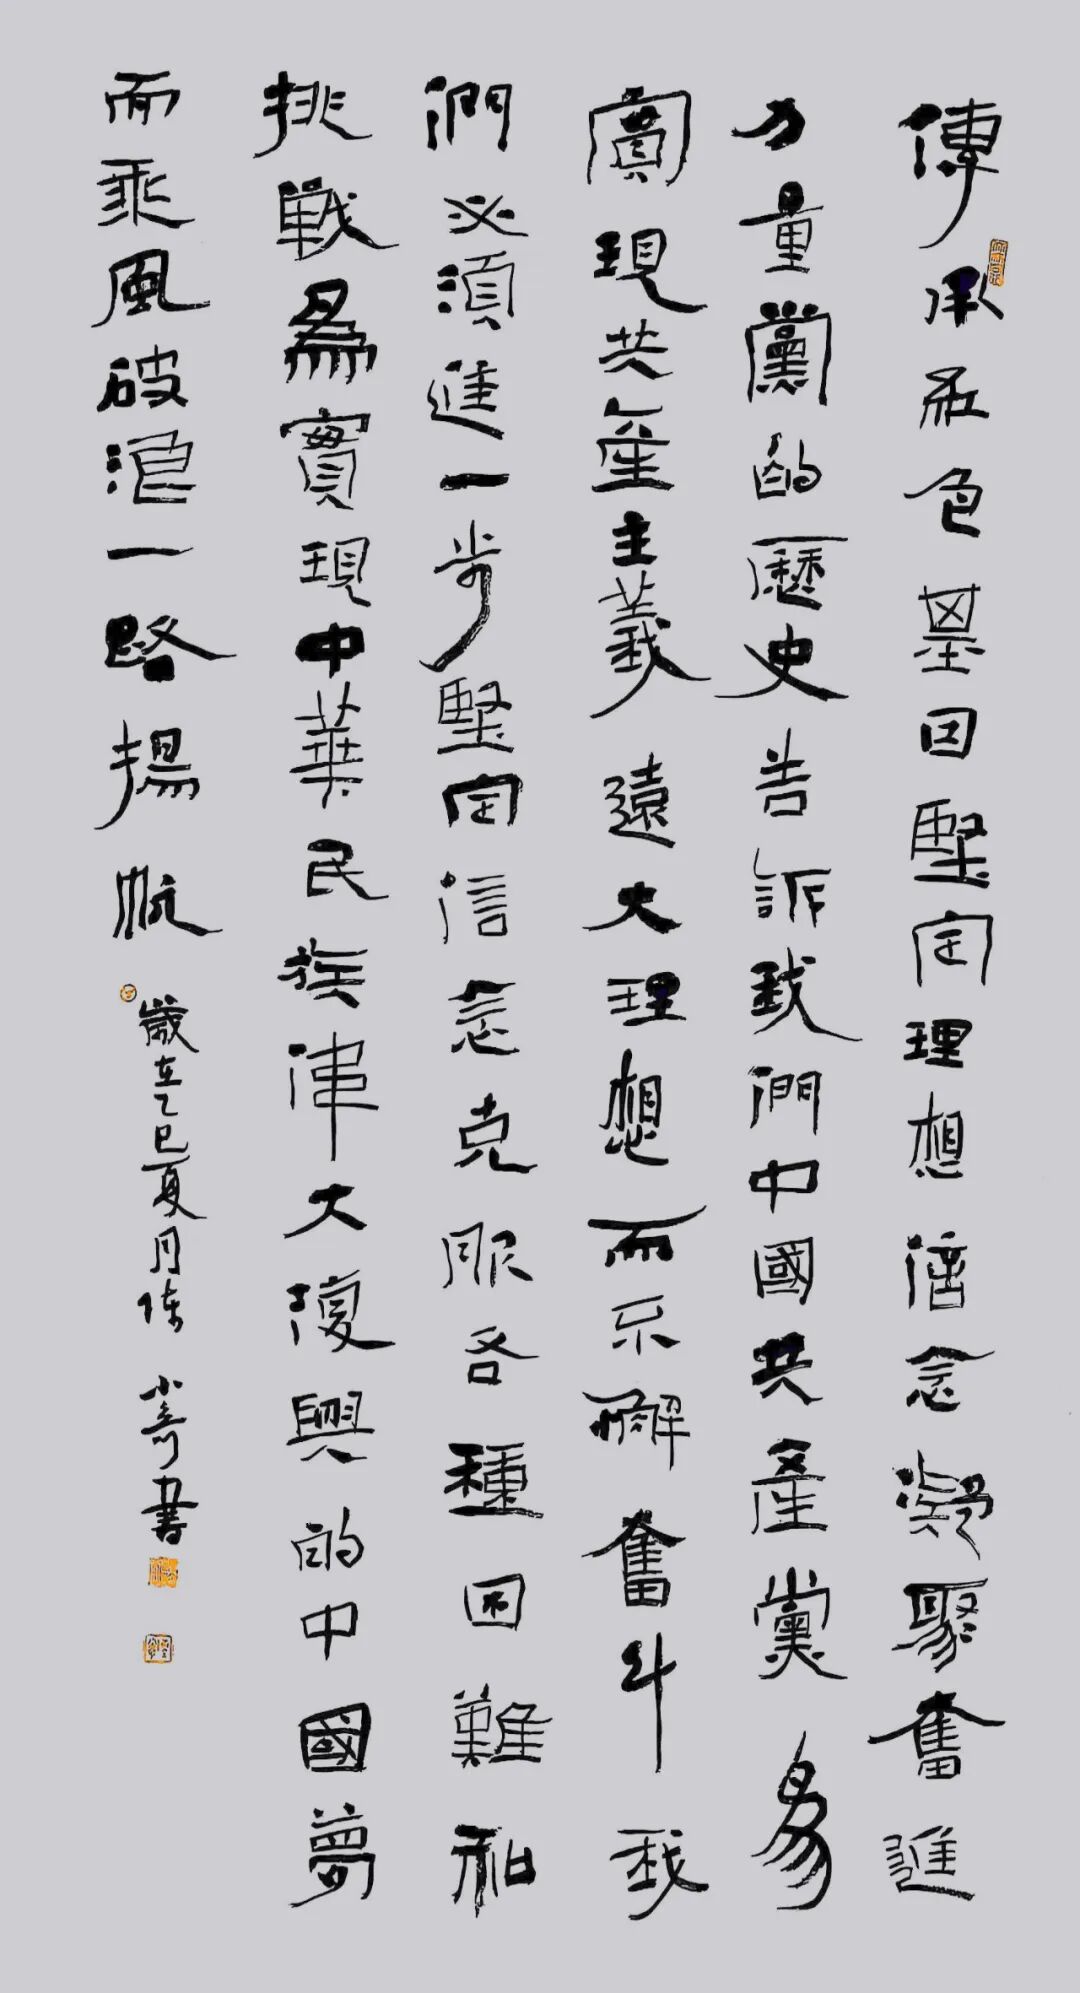 傳承紅色基因堅定理想信念凝聚奮進
力量黨的歷史告訴我們中國共產黨為
實現共產主義遠大理想而不懈奮斗我
們必須進一步堅定信念克服各種困難和
挑戰為實現中華民族偉大復興的中國夢
而乘風破浪一路揚帆
歲在乙巳夏月陳小奇書